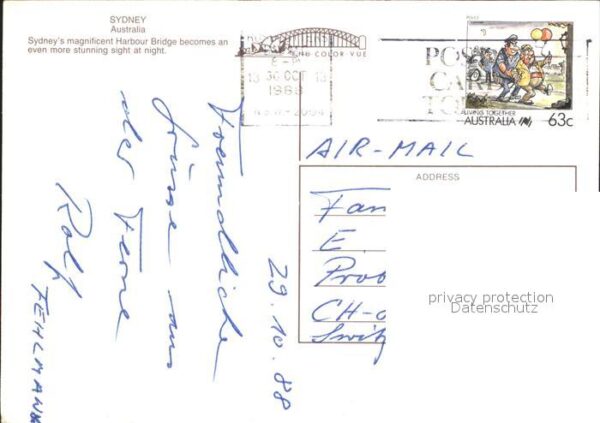 SYDNEY
Australia
Sydney's magnificent Harbour Bridge becomes an
even more stunning sight at night.
COLOR-VUE
30 OCT
1988
POLICE
LIVING TOGETHER
AUSTRALIA 63c
AIR-MAIL
ADDRESS
Fam
E.
CH-
29.10.88
Freundliche
Grüsse aus
der Ferne
Rolf
FEHLMANN
privacy protection
Datenschutz